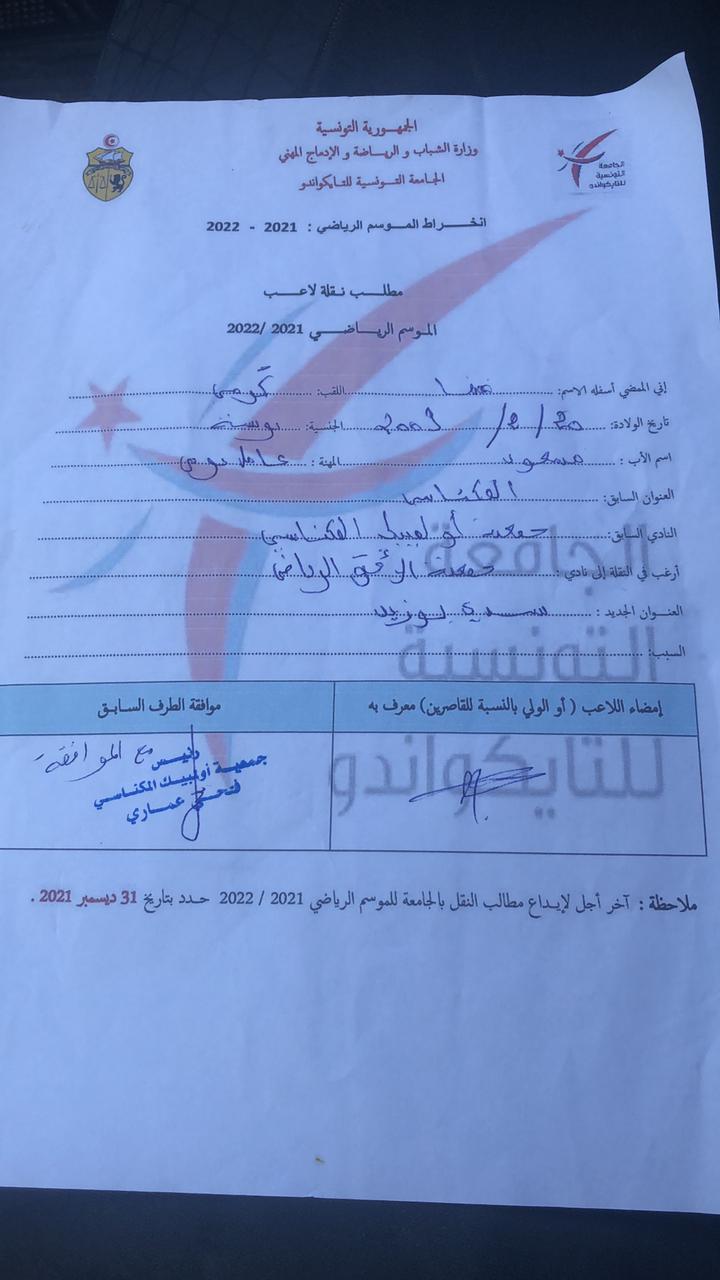 الجمهورية التونسية
وزارة الشباب و الرياضة و الإدماج المهني
الجامعة التونسية للتايكواندو
الجامعة
التونسية
للتايكواندو
انخراط الموسم الرياضي : 2021 - 2022
مطلب نقلة لاعب
الموسم الرياضي 2021 /2022
إني الممضي أسفله الاسم: اللقب:
تاريخ الولادة: 20 / 2 / 2003 الجنسية: تونسية
اسم الأب : مسعود المهنة : عامل يومي
العنوان السابق: المكناسي
النادي السابق: جمعية أولمبيك المكناسي
أرغب في النقلة إلى نادي : جمعية الأفق الرياضي
العنوان الجديد : سيدي بوزيد
السبب:
الجامعة
التونسية
للتايكواندو
إمضاء اللاعب ( أو الولي بالنسبة للقاصرين) معرف به
موافقة الطرف السابق
مع الموافقة
رئيس
جمعية أولمبيك المكناسي
فتحي عماري
ملاحظة : آخر أجل لإيداع مطالب النقل بالجامعة للموسم الرياضي 2021 / 2022 حدد بتاريخ 31 ديسمبر 2021 .